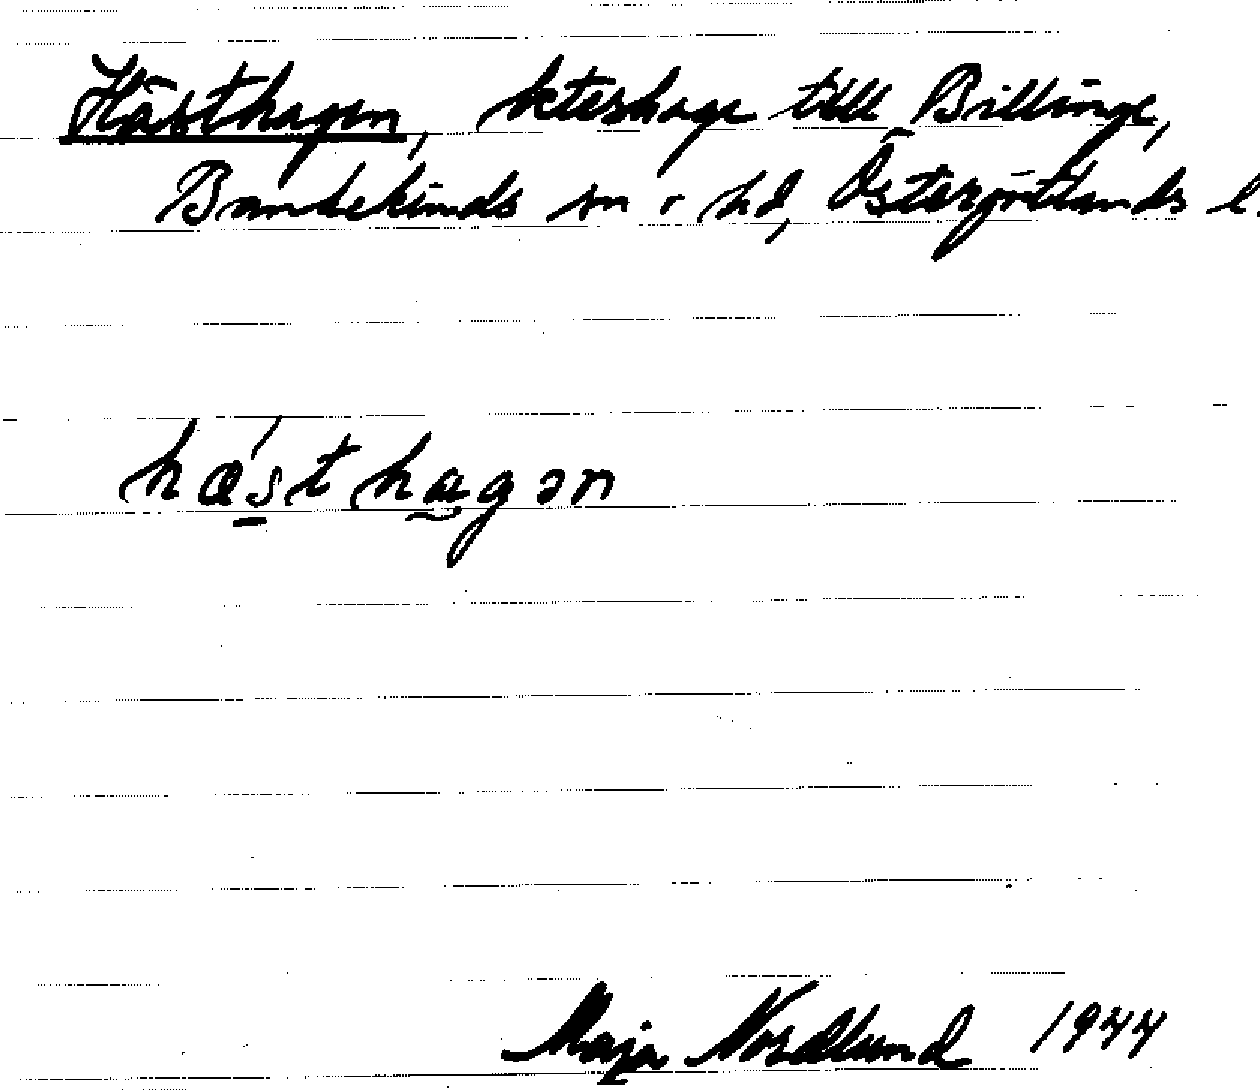 Hästhagen, beteshage till Billinge,
Bankekinds sn o hd, Östergötlands l.
hæ´sthagən
Maja Nordlund 1944